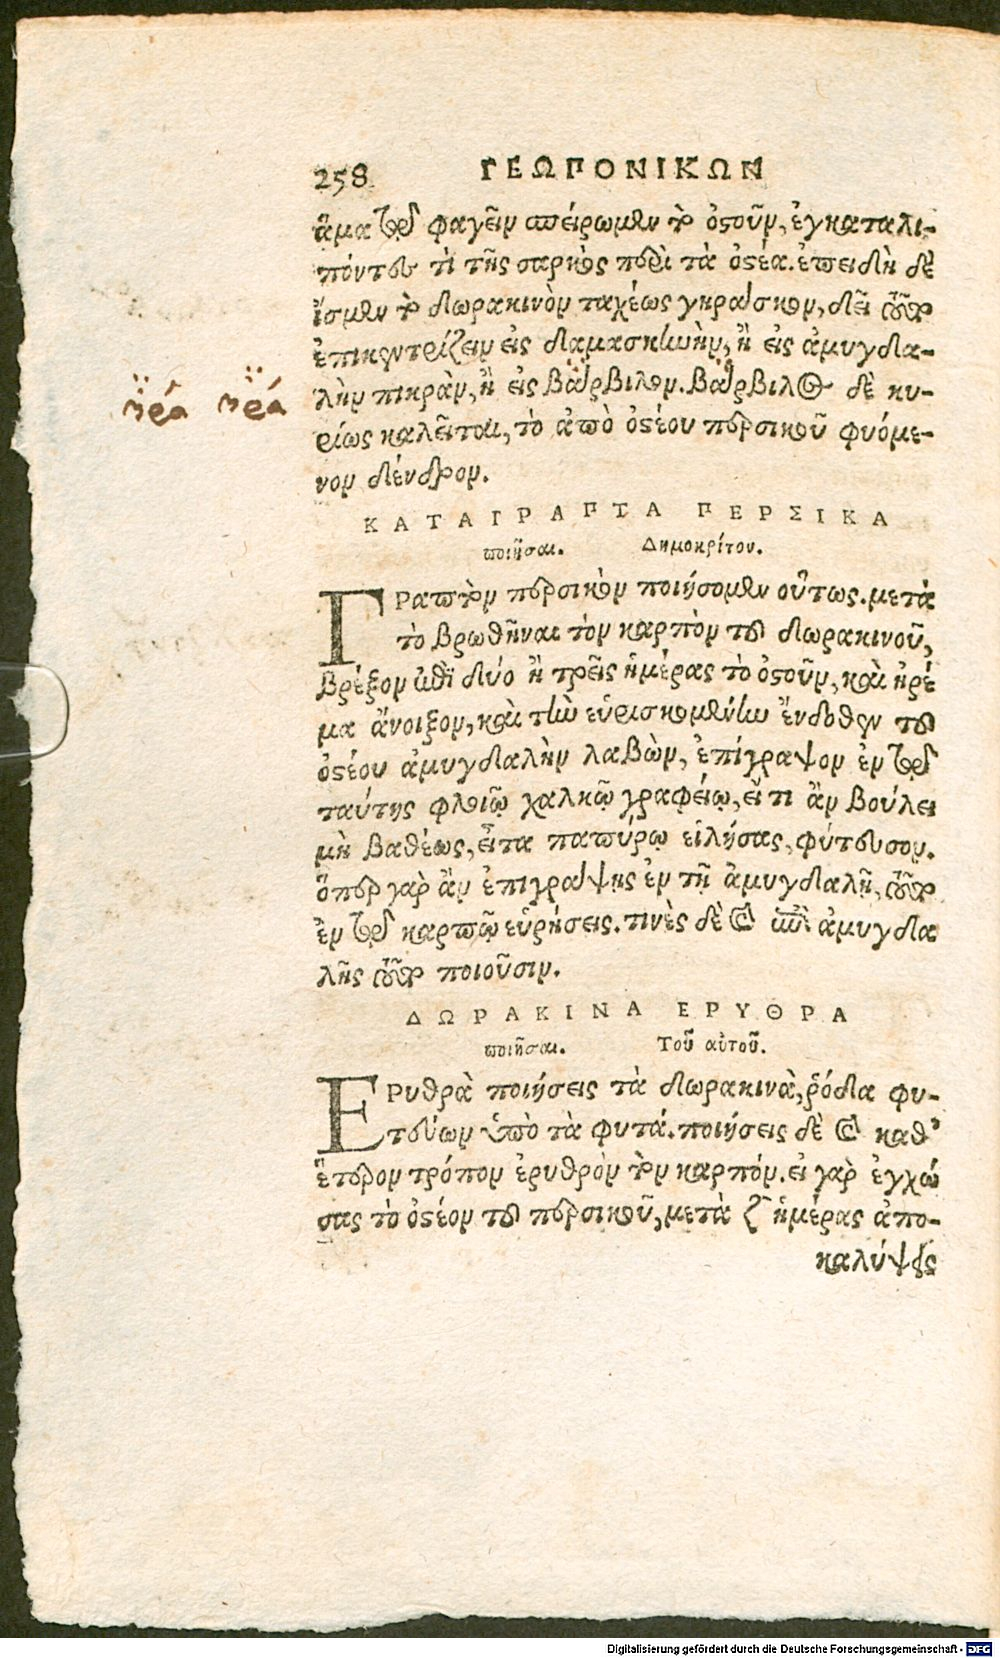 258 ΓΕΩΠΟΝΙΚΩΝ
ἅμα τῷ φαγεῖν σπείρωμεν τὸ ὀστοῦν, ἐγκαταλι-
πόντες τὶ τῆς σαρκὸς περὶ τὰ ὀστέα. ἐπειδὴ δὲ
ἴσμεν τὸ δωρακινὸν ταχέως γηράσκον, δεῖ αὐτὸ
ἐπικεντρίζειν εἰς δαμασκηνὴν, ἢ εἰς ἀμυγδα-
λὴν πικρὰν, ἢ εἰς βάρβιλον. βάρβιλος δὲ κυ-
ρίως καλεῖται, τὸ ἀπὸ ὀστέου περσικοῦ φυόμε-
νον δένδρον.
ΚΑΤΑΓΡΑΠΤΑ ΠΕΡΣΙΚΑ
ποιῆσαι. Δημοκρίτου.
ΓΡαπτὸν περσικὸν ποιήσομεν οὕτως. μετὰ
τὸ βρωθῆναι τὸν καρπὸν τοῦ δωρακινοῦ,
βρέξον ἐπὶ δύο ἢ τρεῖς ἡμέρας τὸ ὀστοῦν, καὶ ἠρέ
μα ἄνοιξον, καὶ τὴν εὑρισκομένην ἔνδοθεν τοῦ
ὀστέου ἀμυγδαλὴν λαβὼν, ἐπίγραψον ἐν τῷ
ταύτης φλοιῷ χαλκῷ γραφείῳ, εἴ τι ἂν βούλει
μὴ βαθέως, εἶτα παπύρῳ εἱλήσας, φύτευσον.
ὅπερ γὰρ ἂν ἐπιγράψῃς ἐν τῇ ἀμυγδαλῇ, αὐτὸ
ἐν τῷ καρπῷ εὑρήσεις. τινὲς δὲ καὶ ἐπὶ ἀμυγδα
λῆς αὐτὸ ποιοῦσιν.
ΔΩΡΑΚΙΝΑ ΕΡΥΘΡΑ
ποιῆσαι. Τοῦ αὐτοῦ.
ΕΡυθρὰ ποιήσεις τὰ δωρακινὰ, ῥόδα φυ-
τεύων ὑπὸ τὰ φυτά. ποιήσεις δὲ καὶ καθ'
ἕτερον τρόπον ἐρυθρὸν τὸν καρπόν. εἰ γὰρ ἐγχώ
σας τὸ ὀστέον τοῦ περσικοῦ, μετὰ ζ ἡμέρας ἀπο-
καλύψεις
Digitalisierung gefördert durch die Deutsche Forschungsgemeinschaft - DFG